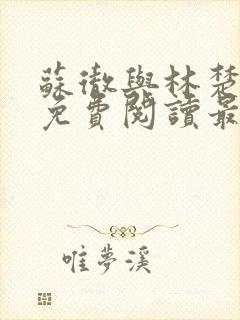 蘇徹與林楚
免費閱讀最
唯夢溪